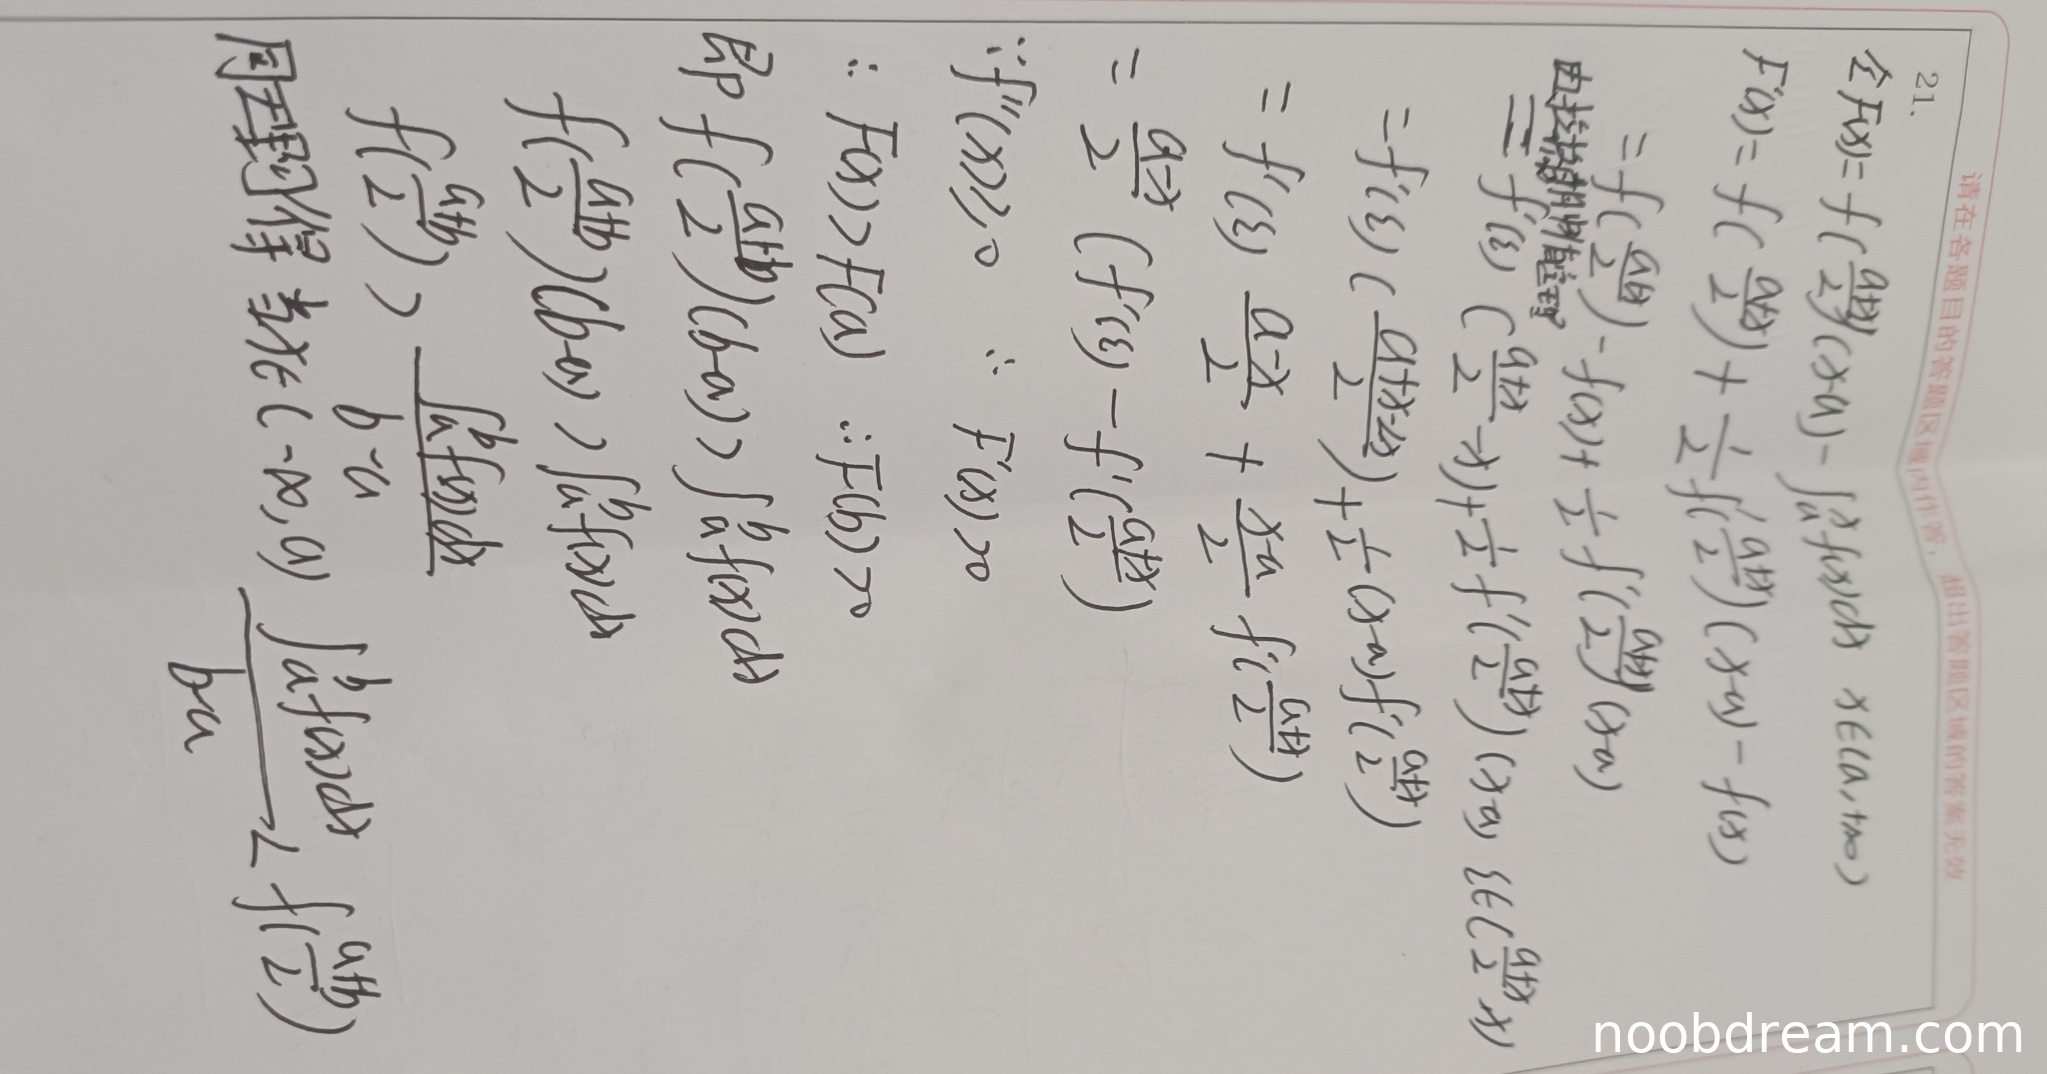 请在各题目的答题区域内作答，超出答题区域的答案无效
21.
令F(x)= f(\frac{a+x}{2})(x-a) - ∫_a^x f(x)dx x∈(a,+∞)
F'(x)= f(\frac{a+x}{2}) + \frac{1}{2}f'(\frac{a+x}{2})(x-a) - f(x)
= f(\frac{a+x}{2}) - f(x) + \frac{1}{2}f'(\frac{a+x}{2})(x-a)
= f'(ξ) (\frac{a+x}{2} - x) + \frac{1}{2}f'(\frac{a+x}{2})(x-a) ξ∈(\frac{a+x}{2} x)
= f'(ξ) (\frac{a+x-2x}{2}) + \frac{1}{2}(x-a)f'(\frac{a+x}{2})
= f'(ξ) \frac{a-x}{2} + \frac{x-a}{2} f'(\frac{a+x}{2})
= \frac{a-x}{2} (f'(ξ) - f'(\frac{a+x}{2}))
∵f''(x)≥0 ∴ F'(x)>0
∴ F(x)>F(a) ∴F(b)>0
即 f(\frac{a+b}{2})(b-a)>∫_a^b f(x)dx
f(\frac{a+b}{2})(b-a)>∫_a^b f(x)dx
f(\frac{a+b}{2}) > \frac{∫_a^b f(x)dx}{b-a}
同理可得 当x∈(-∞,a) \frac{∫_a^b f(x)dx}{b-a} < f(\frac{a+b}{2})
noobdream.com